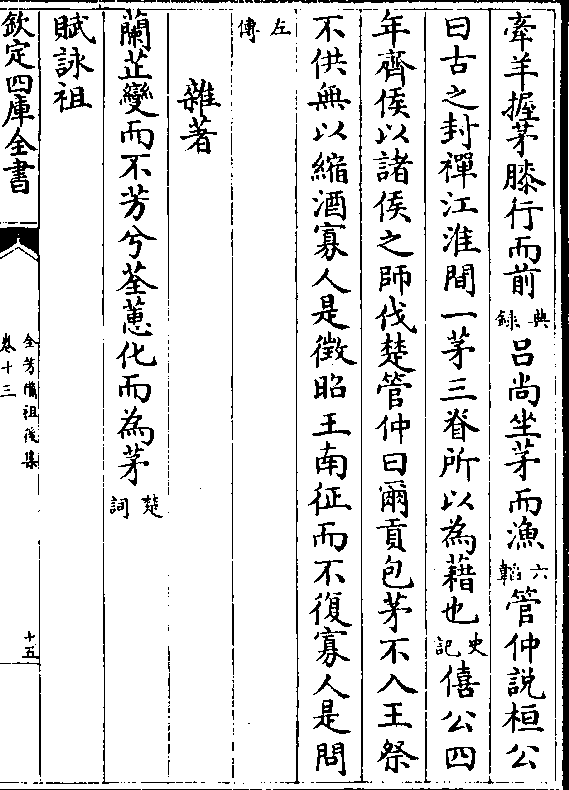 牽羊握茅膝行而前典録吕尚坐茅而漁六韜管仲說桓公
曰古之封禪江淮間一茅三脊所以為藉也史記僖公四
年齊侯以諸侯之師伐楚管仲曰爾貢包茅不入王祭
不供無以縮酒寡人是徵昭王南征而不復寡人是問
左傳
雜著
蘭芷變而不芳兮荃蕙化而為茅楚詞
賦詠祖
欽定四庫全書
全芳備祖後集
卷十三
十五